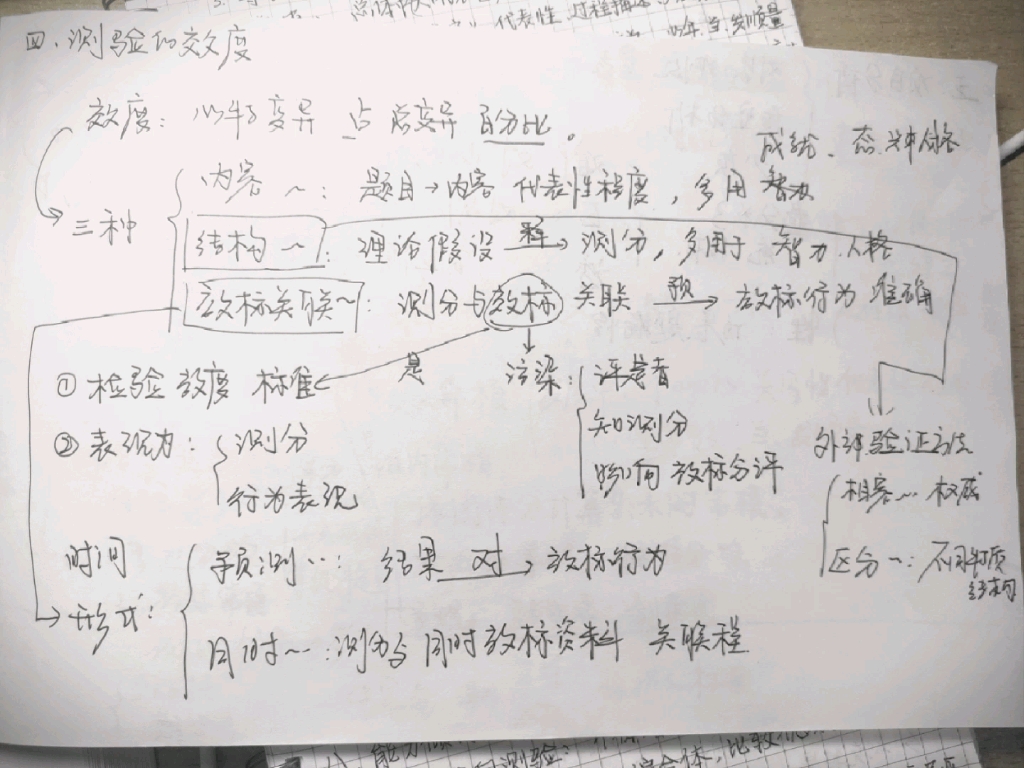 四、测验的效度
效度: 心特变异 占总变异 百分比。
成绩、态、人格
三种
内容~: 题目→内容 代表性程度, 多用 智力
结构~: 理论假设 释→ 测分, 多用于 智力、人格
效标关联~: 测分与效标 关联 预→ 效标行为 准确
① 检验效度 标准
是
污染: 评卷者
知测分
影响 效标分评
② 表现力: 测分
行为表现
外部验证方法
相容~ 权威
区分~: 不同特质结构
时间
形式:
预测~: 结果 对→ 效标行为
同时~: 测分与同时效标资料 关联程
代表性,过程描述